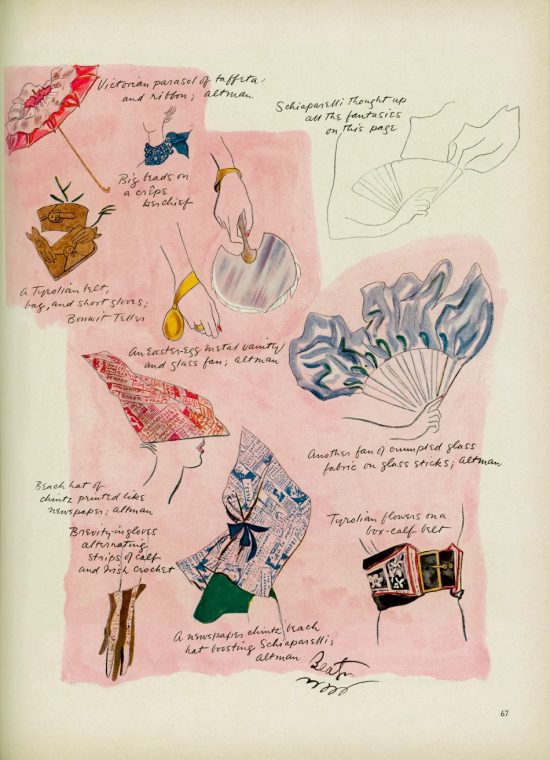 Victorian parasol of taffeta
and ribbon; Altman
Schiaparelli thought up
all the fantasies
on this page
Big beads on
a crêpe
kerchief
A Tyrolian belt,
bag, and short gloves;
Bonwit Teller
An Easter-egg metal vanity
and glass fan; Altman
Another fan of crumpled glass
fabric on glass sticks; Altman
Beach hat of
chintz printed like
newspaper; Altman
Brevity in gloves
alternating
strips of calf
and Irish crochet
Tyrolian flowers on a
box-calf belt
A newspaper chintz beach
hat boosting Schiaparelli;
Altman
Beaton
67